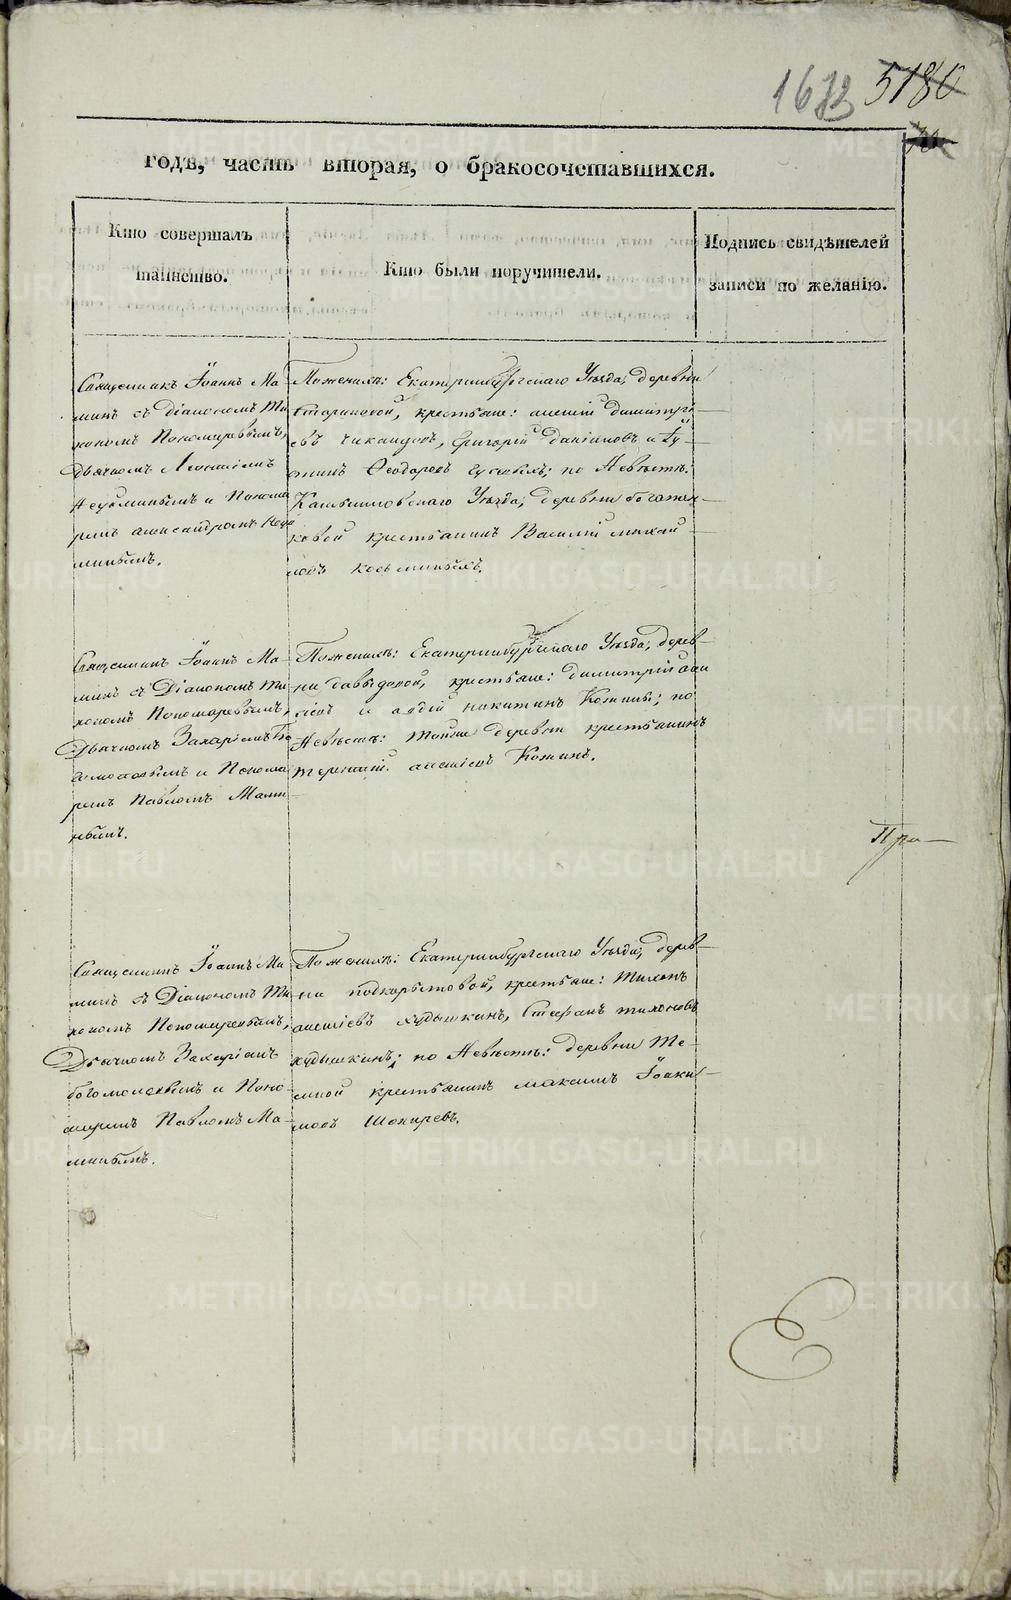 1673 5180
годъ, часть вторая, о бракосочетавшихся.
Кто совершалъ
таинство.
Кто были поручители.
Подпись свидѣтелей
записи по желанію.
Священникъ Іоаннъ Ма
минъ съ Діакономъ Ти
хономъ Пономаревымъ,
Дьячкомъ
и Понома
ремъ Александромъ
миньимъ.
По женихѣ: Екатеринбургскаго Уѣзда, деревни
крестьяне: Алексій Димитрі
евъ Григорій Даніиловъ и
Ѳеодоровъ по Невѣстѣ:
Камышловскаго Уѣзда, деревни
ковой крестьянинъ Василій Михай
ловъ
Священникъ Іоаннъ Ма-
минъ съ Діакономъ Ти
хономъ Пономаревымъ,
Дьячкомъ Захаріемъ Бо
гомоловымъ и Понома
ремъ Павломъ Мами
нымъ.
По женихѣ: Екатеринбургскаго Уѣзда, дерев-
ни Давыдовой, крестьяне: Димитрій
и Авдій Никитинъ Кожины; по
Невѣстѣ: тойже деревни крестьянинъ
Терентій Кожинъ.
Пра
Священникъ Іоаннъ Ма
минъ съ Діакономъ Ти
хономъ Пономаревымъ,
Дьячкомъ Захаріемъ
Богомоловымъ и Поно
маремъ Павломъ Ма-
минымъ.
По женихѣ: Екатеринбургскаго Уѣзда, дерев-
ни Подкорытовой, крестьяне: Тихонъ
Алексіевъ Худышкинъ, Стефанъ Тихоновъ
Худышкинъ; по Невѣстѣ: деревни Те-
мной крестьянинъ Максимъ Іоаки-
мовъ
METRIKI.GASO-URAL.RU